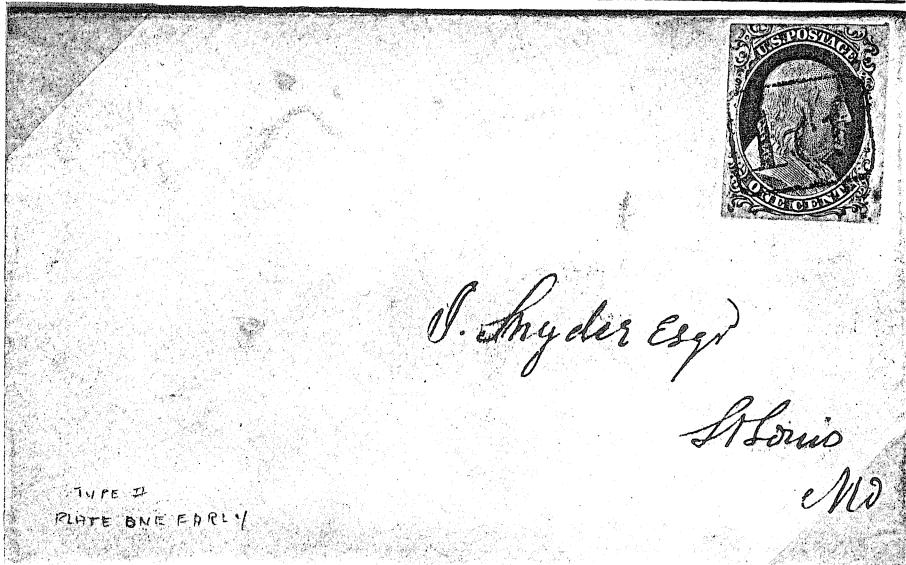 U.S. POSTAGE
ONE CENT
S. Snyder Esqr
St Louis
Mo
TYPE II
PLATE ONE EARLY